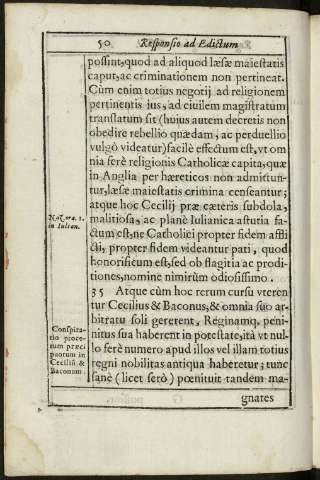 50 Responsio ad Edictum
possint, quod ad aliquod læsæ maiestatis
caput, ac criminationem non pertineat.
Cùm enim totius negotij ad religionem
pertinentis ius, ad ciuilem magistratum
translatum sit (huius autem decretis non
obedire rebellio quædam, ac perduellio
vulgò videatur) facilè effectum est, vt om
nia ferè religionis Catholicæ capita, quæ
in Anglia per hæreticos non admittun-
tur, læsæ maiestatis crimina censeantur;
atque hoc Cecilij præ cæteris subdola,
Naz. ora. 1.
in Iulian.
malitiosa, ac planè Iulianica astutia fa-
ctum est, ne Catholici propter fidem affli
cti, propter fidem videantur pati, quod
honorificum est, sed ob flagitia ac prodi-
tiones, nomine nimirùm odiosissimo.
35 Atque cùm hoc rerum cursu vteren
tur Cecilius & Baconus; & omnia suo ar-
bitratu soli gererent, Reginamq. peni-
Conspira-
tio proce-
rum præci
puorum in
Ceciliū &
Baconum.
nitus sua haberent in potestate, ità vt nul-
lo ferè numero apud illos vel illam totius
regni nobilitas antiqua haberetur; tunc
sanè (licet serò) pœnituit tandem ma-
gnates